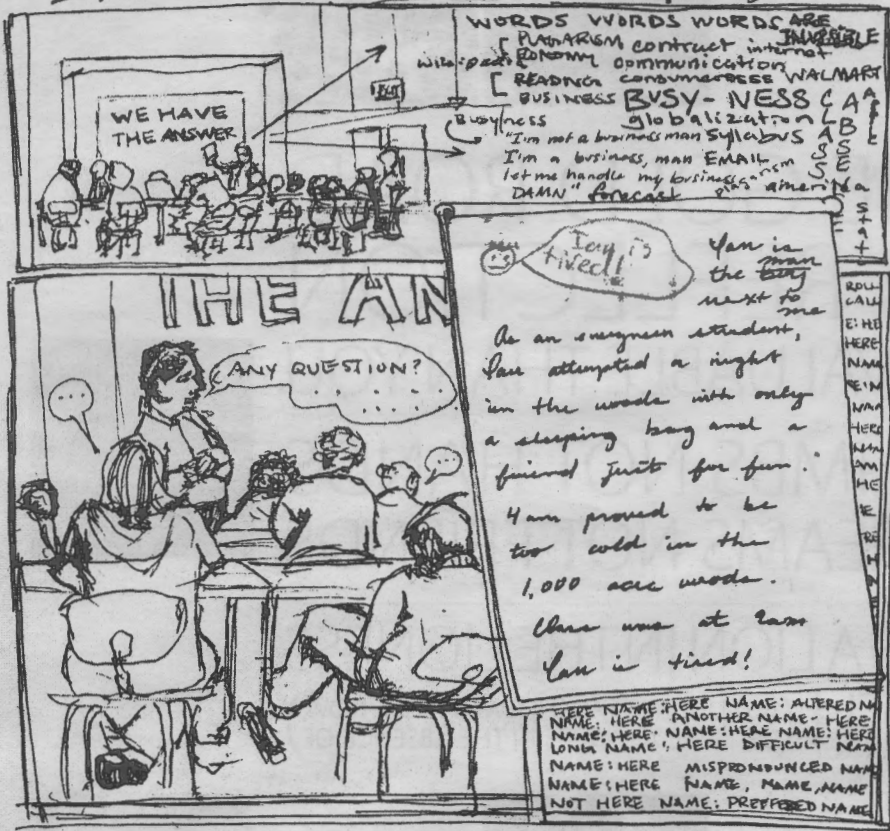 WORDS WORDS WORDS ARE
INVISIBLE
PLAGARISM contract internet
ECONOMY communication
READING consumeresss WALMART
BUSINESS BUSY-NESS
Busyness globalization
"I'm not a businessman Syllabus
I'm a business, man EMAIL
let me handle my business plagarism
DAMN" forecast america
CLASSES
ABSENT
state
WE HAVE
THE ANSWER
EXIT
THE AN
ANY QUESTION?
. . . . . .
...
...
Ian is
tired!
Ian is
the boy man
next to
me
As an evergreen student,
Ian attempted a night
in the woods with only
a sleeping bag and a
friend just for fun.
4am proved to be
too cold in the
1,000 acre woods.
Class was at 9am
Ian is tired!
ROLL
CALL
E: HE
HERE
NAM
E: N
NAM
HERE
NAM
AM
HE
E
RE
HERE NAME: HERE NAME: ALTERED NA
NAME: HERE ANOTHER NAME- HERE
NAME: HERE- NAME: HERE NAME: HERE
LONG NAME: HERE DIFFICULT NAM
NAME: HERE MISPRONOUNCED NAM
NAME: HERE NAME, NAME, NAME
NOT HERE NAME: PREFFERED NAME